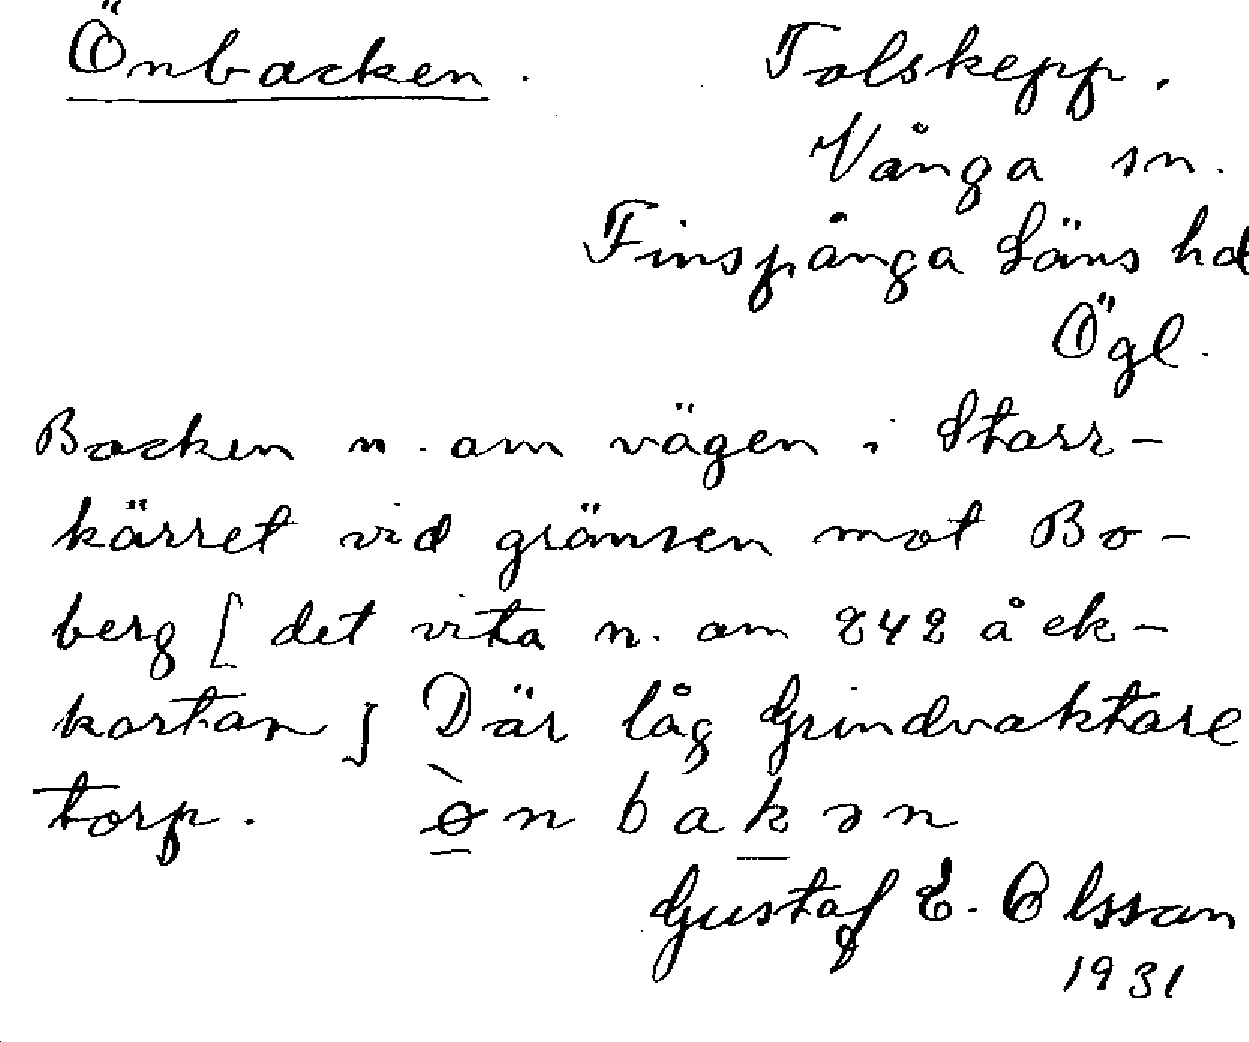 Önbacken. Tolskepp.
Vånga sn.
Finspånga läns hd
Ögl.
Backen n. om vägen i Starr-
kärret vid gränsen mot Bo-
berg [det vita n. om 242 å ek-
kartan] Där låg Grindvaktare
torp. ø̀nbakən
Gustaf E. Olsson
1931